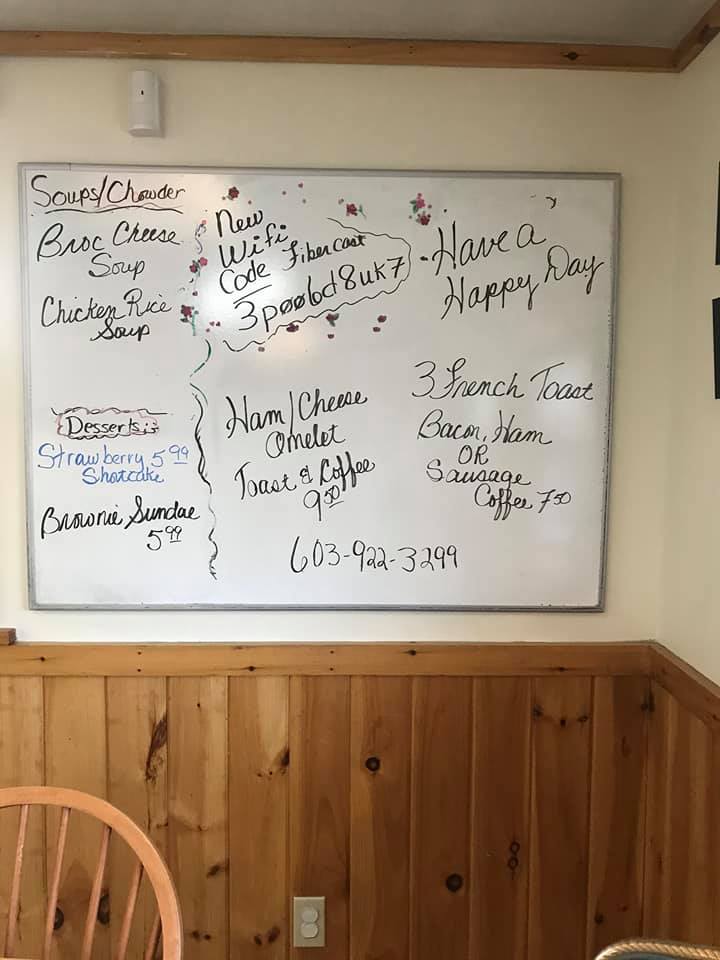 Soups/Chowder
Broc Cheese
Soup
Chicken Rice
Soup
Desserts:
Strawberry 5.99
Shortcake
Brownie Sundae
5.99
New
Wifi
Code Fibercast
3pøø6d8uk7
Have a
Happy Day
Ham/Cheese
Omelet
Toast & Coffee
9.50
3 French Toast
Bacon, Ham
OR
Sausage
Coffee 7.50
603-922-3299